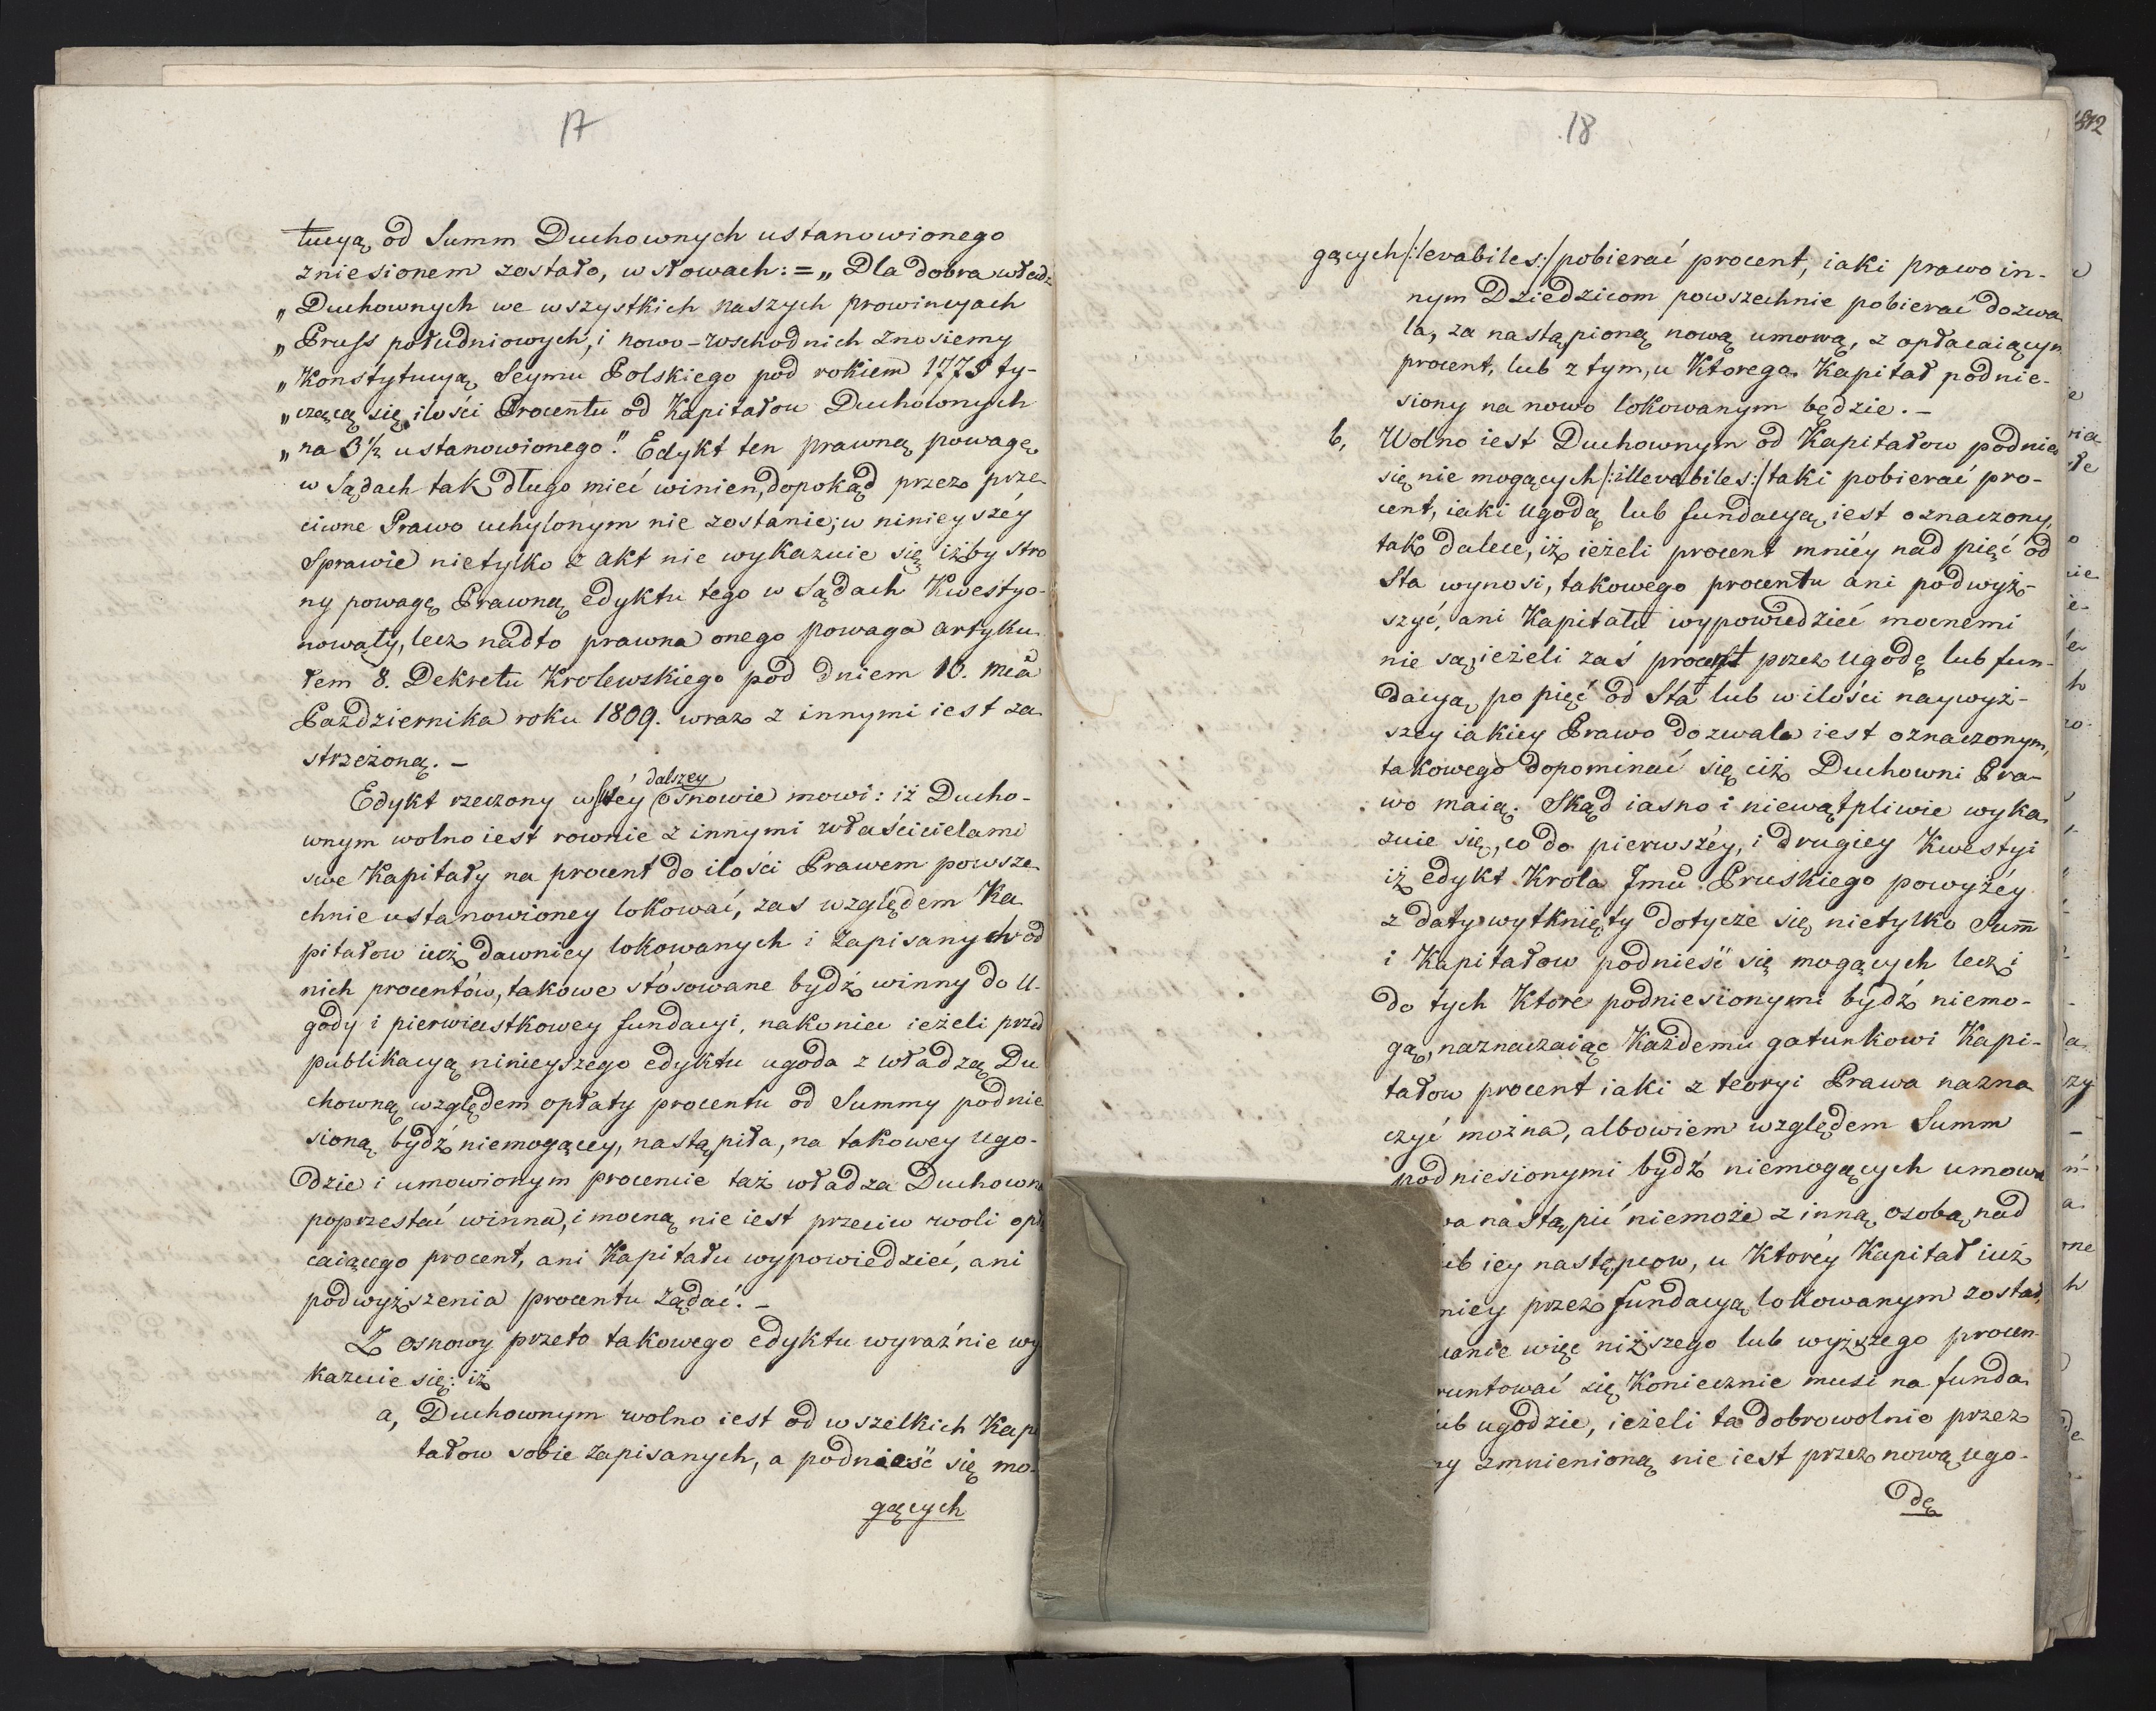 17
tucyą od Summ Duchownych ustanowionego
zniesionem zostało, w słowach: = „Dla dobra władz
„Duchownych we wszystkich naszych prowincyach
„Pruss południowych, i nowo-wschodnich znosiemy
„Konstytucyą Seymu Polskiego pod rokiem 1775 ty-
„czącą się ilości Procentu od Kapitałow Duchownych
„na 3½ ustanowionego." Edykt ten prawną powagę
w Sądach tak długo mieć winien, dopokąd przez prze
ciwne Prawo uchylonym nie zostanie; w ninieyszéy
Sprawie nietylko z akt nie wykazuie się iżby Stro
ny powagę Prawną edyktu tego w Sądach Kwestyo-
nowały, lecz nadto prawna onego powaga artyku
łem 8. Dekretu Krolewskiego pod dniem 10. mca
Października roku 1809. wraz z innymi iest za
strzeżoną. –
Edykt rzeczony w dalszey osnowie mowi: iż Ducho-
wnym wolno iest rownie z innymi właścicielami
swe Kapitały na procent do ilości Prawem powsze
chnie ustanowioney lokować, zas względem Ka
pitałow iuż dawniey lokowanych i zapisanych od
nich procentów, takowe stósowane bydź winny do U-
gody i pierwiastkowey fundacyi, nakoniec ieżeli przed
publikacyą ninieyszego edyktu ugoda z władzą Du
chowną względem opłaty procentu od Summy podnie
sioną bydź niemogącey, nastąpiła, na takowey Ugo-
dzie i umowionym procencie taż władza Duchowna
poprzestać winna, i mocną nie iest przeciw woli opł
caiącego procent, ani Kapitału wypowiedzieć, ani
podwyższenia procentu żądać. –
Z osnowy przeto takowego edyktu wyraźnie wy
kazuie się: iż
a, Duchownym wolno iest od wszelkich Kapi
tałow sobie zapisanych, a podnieść się mo-
gących
18
gących /:levabiles:/ pobierać procent, iaki prawo in-
nym Dziedzicom powszechnie pobierać dozwa
la, za nastąpioną nową umową, z opłacaiącym
procent, lub z tym, u Ktorego Kapitał podnie-
siony na nowo lokowanym będzie. –
b, Wolno iest Duchownym od Kapitałow podnieś
się nie mogących /:illevabiles:/ taki pobierać pro-
cent, iaki Ugodą lub fundacyą iest oznaczony,
tak dalece, iż ieżeli procent mniéy nad pięć od
Sta wynosi, takowego procentu ani podwyż-
szyć, ani Kapitału wypowiedzieć mocnemi
nie są, ieżeli zaś procent przez Ugodę lub fun-
dacyą po pięć od Sta lub w ilości naywyż-
szey iakiey Prawo dozwala iest oznaczonym,
takowego dopominać się ciż Duchowni Pra-
wo maią. Skąd iasno i niewątpliwie wyka
zuie się, co do pierwszéy, i drugiey Kwestyi
iż edykt Krola Jmu Pruskiego powyżéy
z daty wytknięty dotycze się nietylko Summ
i Kapitałow podnieść się mogących lecz i
do tych Ktore podniesionymi bydź niemo-
gą, naznaczaiąc Każdemu gatunkowi Kapi-
tałow procent iaki z teoryi Prawa nazna
czyć można, albowiem względem Summ
podniesionymi bydź niemogących umowa
wa nastąpić niemoże z inną osobą nad
ub iey następcow, u Ktoréy Kapitał iuż
niey przez fundacyą lokowanym został,
anie więc niższego lub wyższego procen-
runtować się Koniecznie musi na funda
ub ugodzie, ieżeli ta dobrowolnie przez
ny zmnienioną nie iest przez nową ugo-
dę